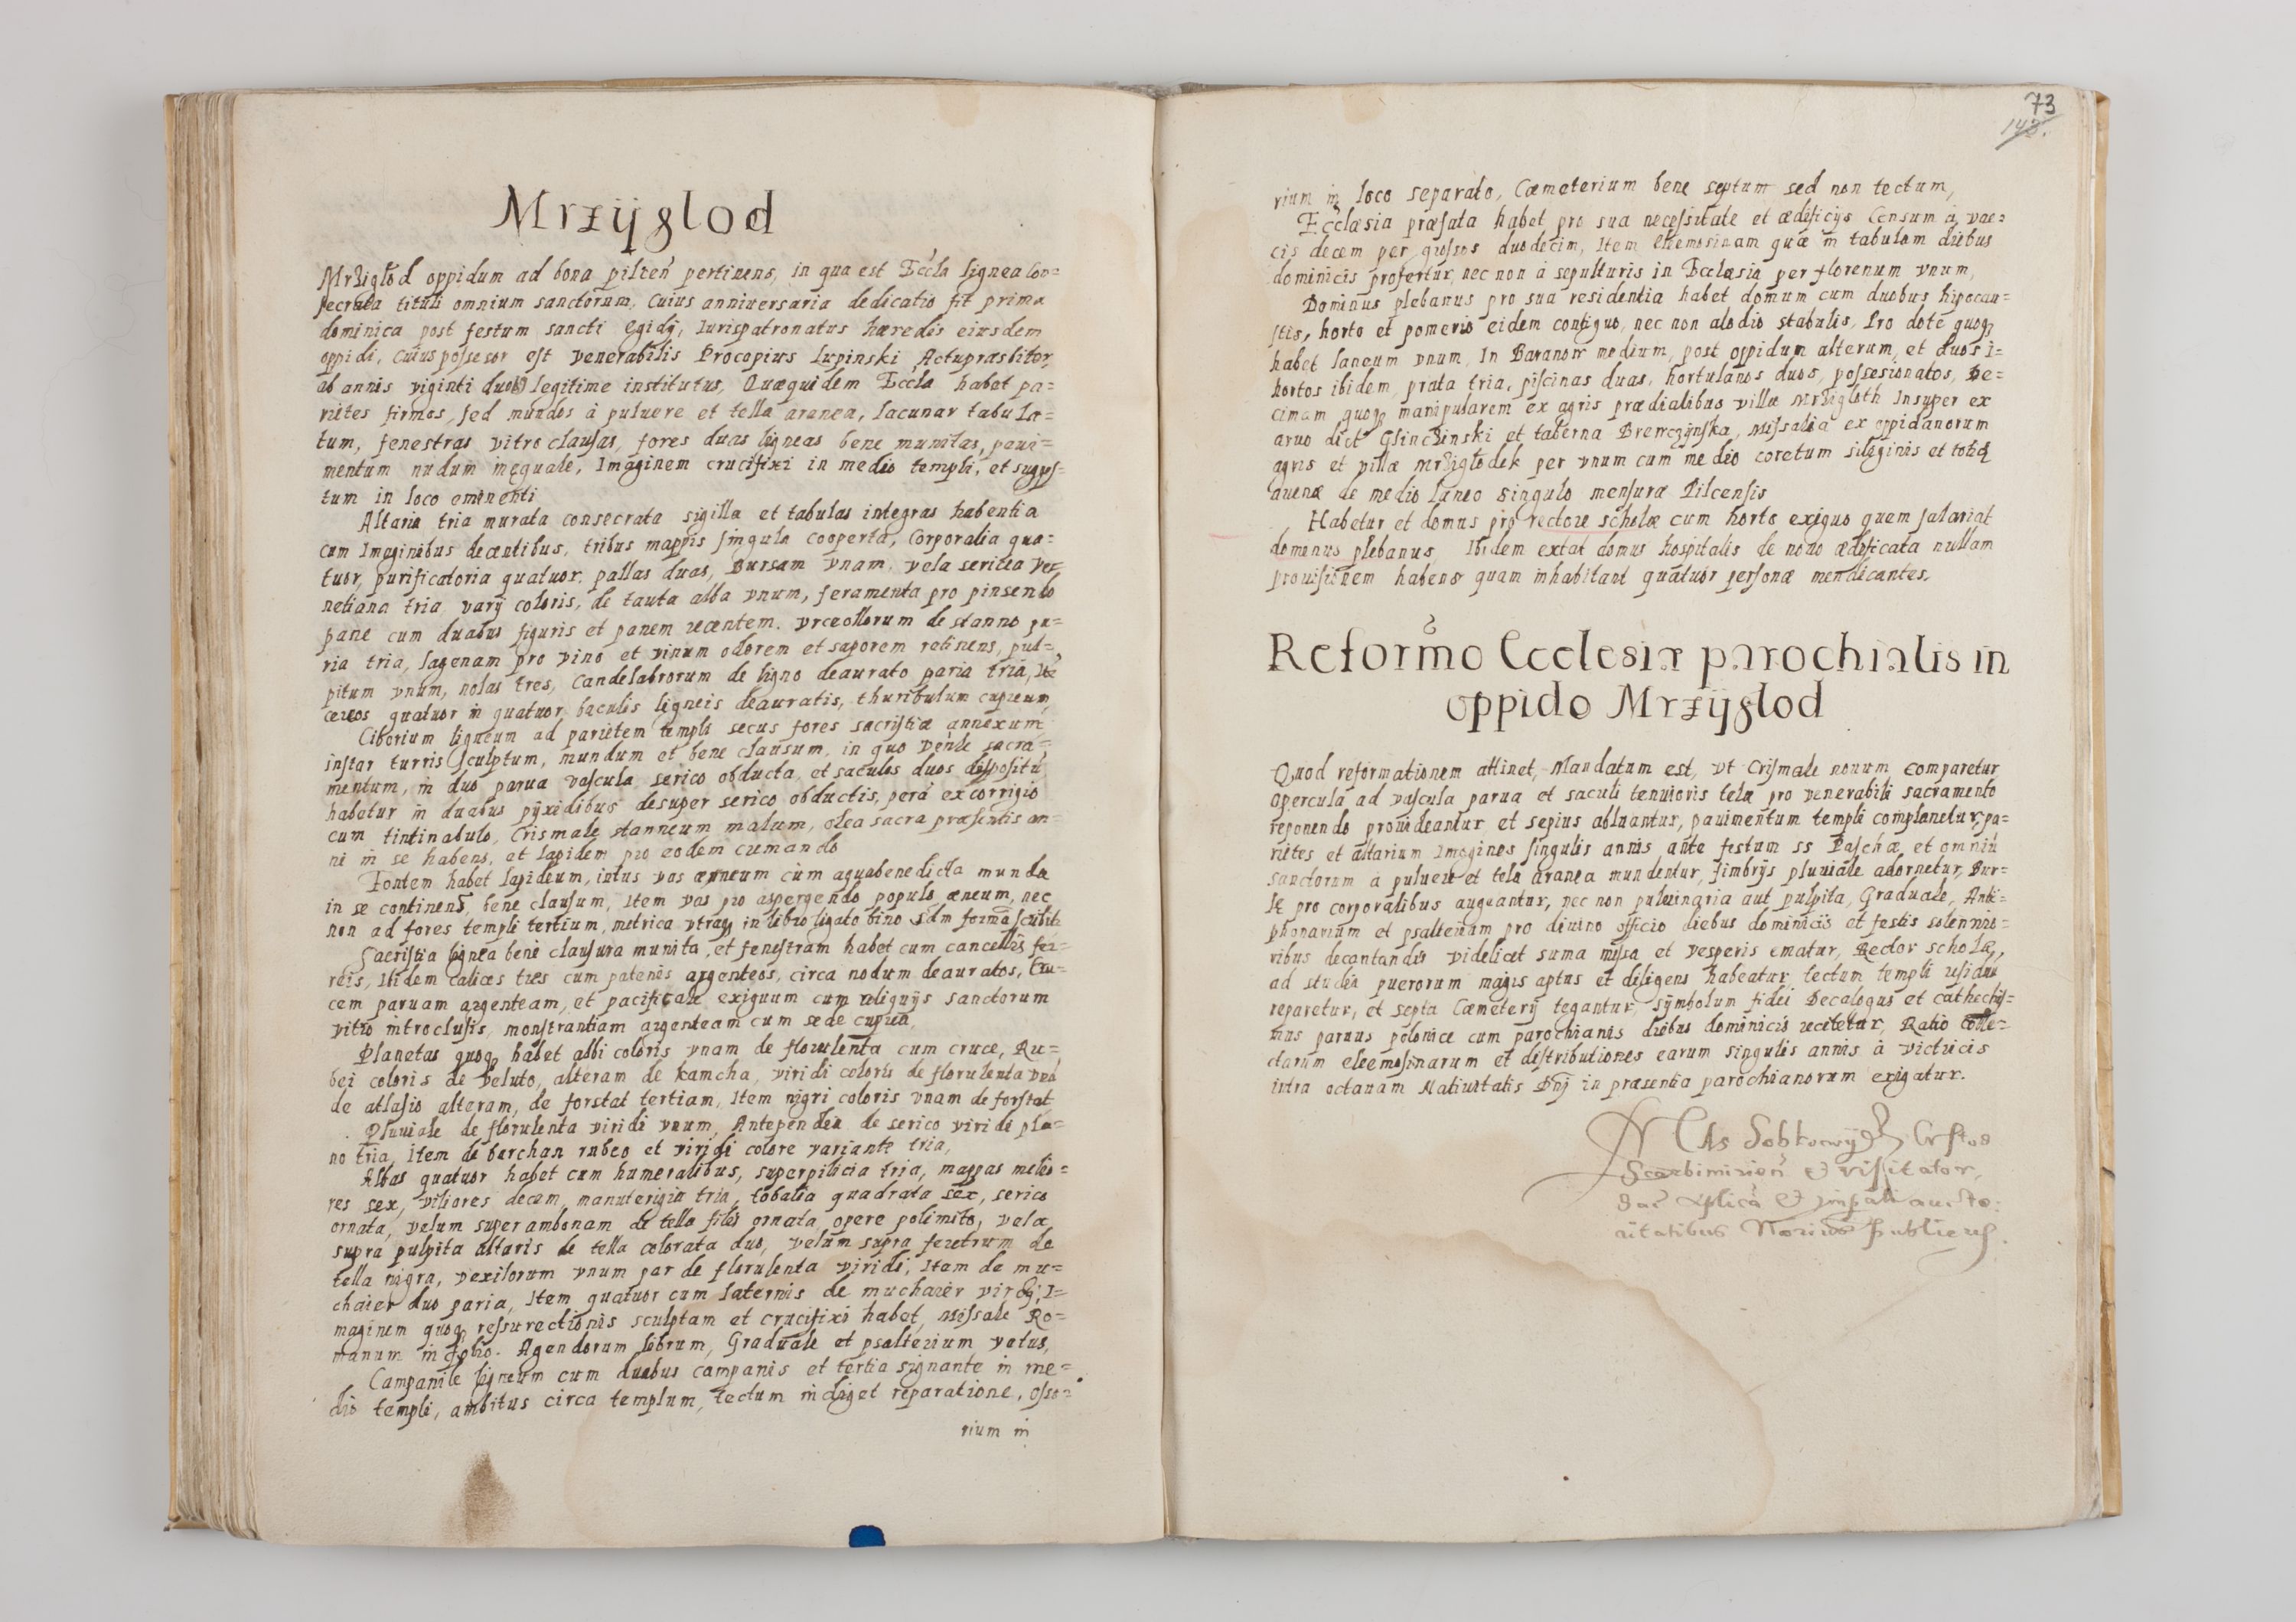 Mrzÿglod
Mrzigłod oppidum ad bona pilzeń pertinens, in qua est Eccla lignea con=
secrata tituli omnium sanctorum, Cuius anniuersaria dedicatio fit prima
dominica post festum sancti Egidÿ, Iurispatronatus hæredis eiusdem
oppidi, Cuius possesor est venerabilis Procopius Lupinski
ab annis viginti legitime institutus, Quæquidem Eccla habet pa=
rietes firmos, sed mundos à puluere et tella aranea, lacunar tabula=
tum, fenestras vitro clausas, fores duas ligneas bene munitas, paui=
mentum nudum inęquale, Imaginem crucifixi in medio templi, et suggs=
tum in loco eminenti
Altaria tria murata consecrata sigilla et tabulas integras habentia
cum Imaginibus decentibus, tribus mappis singula cooperta, Corporalia qua=
tuor, purificatoria quatuor, pallas duas, Bursam vnam, vela sericea Ve=
netiana tria varÿ coloris, de tauta alba vnum, feramenta pro pinsendo
pane cum duabus figuris et panem recentem. vrceollorum de stanno pa=
ria tria, lagenam pro vino et vinum odorem et saporem retinens, pul=
pitum vnum, nolas tres, Candelabrorum de ligno deaurato paria tria,
cereos quatuor in quatuor baculis ligneis deauratis, thuribulum cupreum
Ciborium ligneum ad parietem templi secus fores sacristiæ annexum
instar turris sculptum, mundum et bene clausum, in quo venle sacra=
mentum, in duo parua vascula serico obducta, et saculos duos dispositū
habetur in duabus pÿxidibus desuper serico obductis, pera ex corrigio
cum tintinabulo, Crismale stanneum malum, olea sacra præsentis an=
ni in se habens, et lapidem pro eodem cremando
Fontem habet lapideum, intus vas æneum cum aqua benedicta munda
in se continens, bene clausum, Item vas pro aspergendo populo æneum, nec
non ad fores templi tertium, metrica vtraq in libro ligato bino sdm forma
Sacristia lignea bene clausura munita, et fenestram habet cum cancellis fer=
reis, Ibidem calices tres cum patenis argenteos, circa nodum deauratos, Cru=
cem paruam argenteam, et pacificale exiguum cum reliquÿs sanctorum
vitro introclusis, monstrantiam argenteam cum sede cuprea,
Planetas quoq habet albi coloris vnam de florulenta cum cruce, Ru=
bei coloris de veluto, alteram de kamcha, viridi coloris de florulenta vnā
de atlasio alteram, de forstat tertiam, Item nigri coloris vnam de forstat
Pluuiale de florulenta viridi vnum, Antependia de serico viridi pla=
no tria, Item de barchan rubeo et viridi colore variante tria,
Albas quatuor habet cum humeralibus, superpilicia tria, mappas melio=
res sex, viliores decem, manuterigia tria, tobalia quadrata sex, serico
ornata, velum super ambonam de tella filis ornata opere polimito, vela
supra pulpita altaris de tella colorata duo, velum supra feretrum de
tella nigra, vexilorum vnum par de florulenta viridi, Item de mu=
chaier duo paria, Item quatuor cum laternis de muchaier I=
maginem quoq ressurectionis sculptam et crucifixi habet, Missale Ro=
manum in folio. Agendorum librum, Graduale et psalterium vetus,
Campanile ligneum cum duabus campanis et tertia signante in me=
dio templi, ambitus circa templum, tectum indiget reparatione, osso=
rium in
73
148.
rium in loco separato, Cæmeterium bene septum sed non tectum,
Ecclæsia præfata habet pro sua necessitate et ædificÿs Censum à vac=
cis decem per grossos duodecim, Item Eleemosinam quæ in tabulam diebus
dominicis profertur, nec non à sepulturis in Ecclæsia per florenum vnum,
Dominus plebanus pro sua residentia habet domum cum duobus hipocau=
stis, horto et pomerio eidem contiguo, nec non alodio stabulis, Pro dote quoq
habet laneum vnum, In Baranow medium, post oppidum alterum, et duos
hortos ibidem, prata tria, piscinas duas, hortulanos duos, possesionatos, De=
cimam quoq manipularem ex agris prædialibus villæ Mrzigloth Insuper ex
aruo dict Glinczinski et taberna Brewczÿnska, Missalia ex oppidanorum
agris et villæ Mrzigłodek per vnum cum medio coretum siliginis et totid
auenæ de medio laneo singulo mensuræ Pilcensis
Habetur et domus pro rectore scholæ cum horto exiguo quem salariat
dominus plebanus, Ibidem extat domus hospitalis de nouo ædificata nullam
prouisionem habens quam inhabitant quatuor personæ mendicantes.
Reformo Ecclesiæ parochialis in
oppido Mrzÿglod
Quod reformationem attinet, Mandatum est, vt Crismale nouum comparetur
opercula ad vascula parua et saculi tenuioris tela pro venerabili sacramento
reponendo prouideantur et sepius abluantur, pauimentum templi complanetur, pa=
rietes et altarium Imagines singulis annis ante festum ss Paschæ, et omniū
sanctorum à puluere et tela aranea mundentur, fimbrÿs pluuiale adornetur, Bur=
sæ pro corporalibus augeantur, nec non puluinaria aut pulpita, Graduale, Anti=
phonarium et psalterium pro diuino officio diebus dominicis et festis solennio=
ribus decantandis videlicet suma missa et vesperis ematur, Rector scholæ,
ad studia puerorum magis aptus et diligens habeatur, tectum templi
reparetur, et septa Cæmeterÿ tegantur, Sÿmbolum fidei Decalogus et cathechis=
mus paruus polonice cum parochianis diebus dominicis recitetur, Ratio colle=
ctarum eleemosinarum et distributiones earum singulis annis à victricis
intra octauam Natiuitatis Dnj in præsentia parochianorum exigatur.
Custos
Scarbimirień et visitator,
aucto=
ritatibus Notarius Publicus.